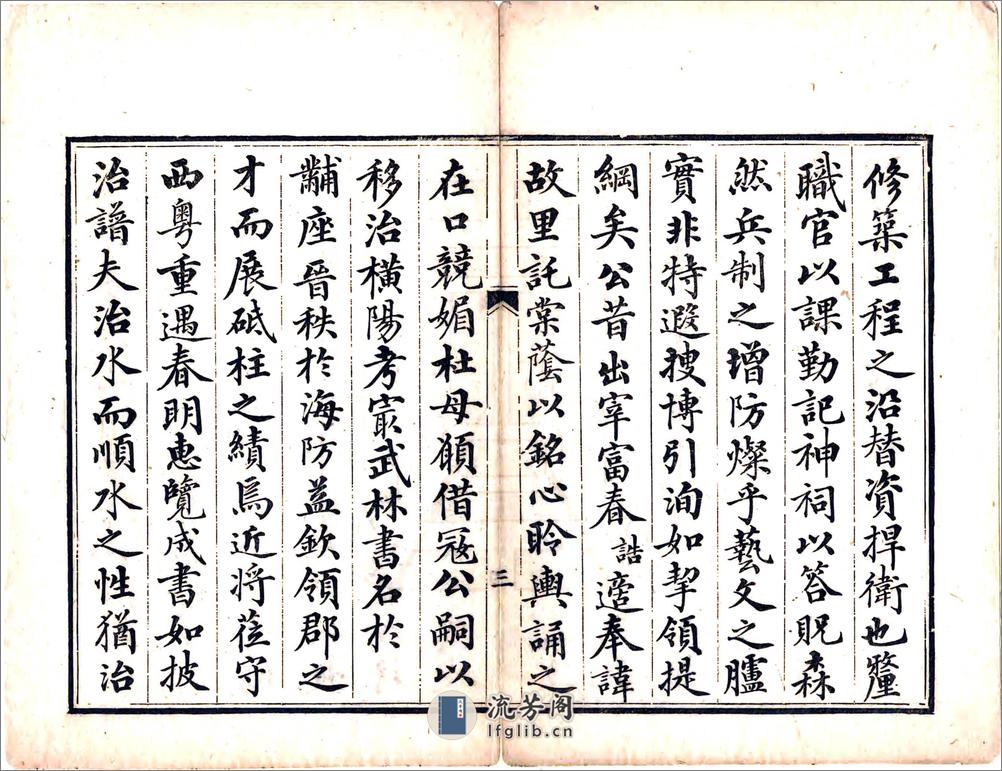 修築工程之沿替資捍衛也釐
職官以課勤記神祠以答貺森
然兵制之增防燦乎藝文之臚
實非特遐搜博引洵如挈領提
綱矣公昔出宰富春誥適奉諱
故里託棠蔭以銘心聆輿誦之
三
在口競媚杜母願借冦公嗣以
移治橫陽考㝡武林書名於
黼座晉秩於海防益欽領郡之
才而展砥柱之績焉近將莅守
西粵重遇春明惠覽成書如披
治譜夫治水而順水之性猶治
流芳阁
lfglib.cn